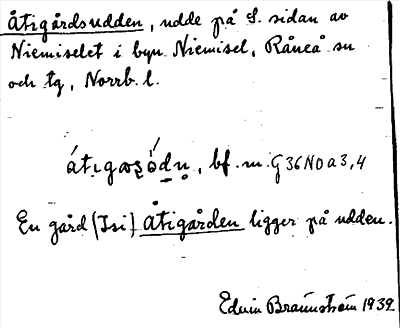 Åtigårdsudden, udde på S. sidan av
Niemiselet i byn Niemisel, Råneå sn
och tg, Norrb. l.
bf. m. G36N0a3,4
En gård (Isi) Åtigården ligger på udden.
Edvin Brännström 1939